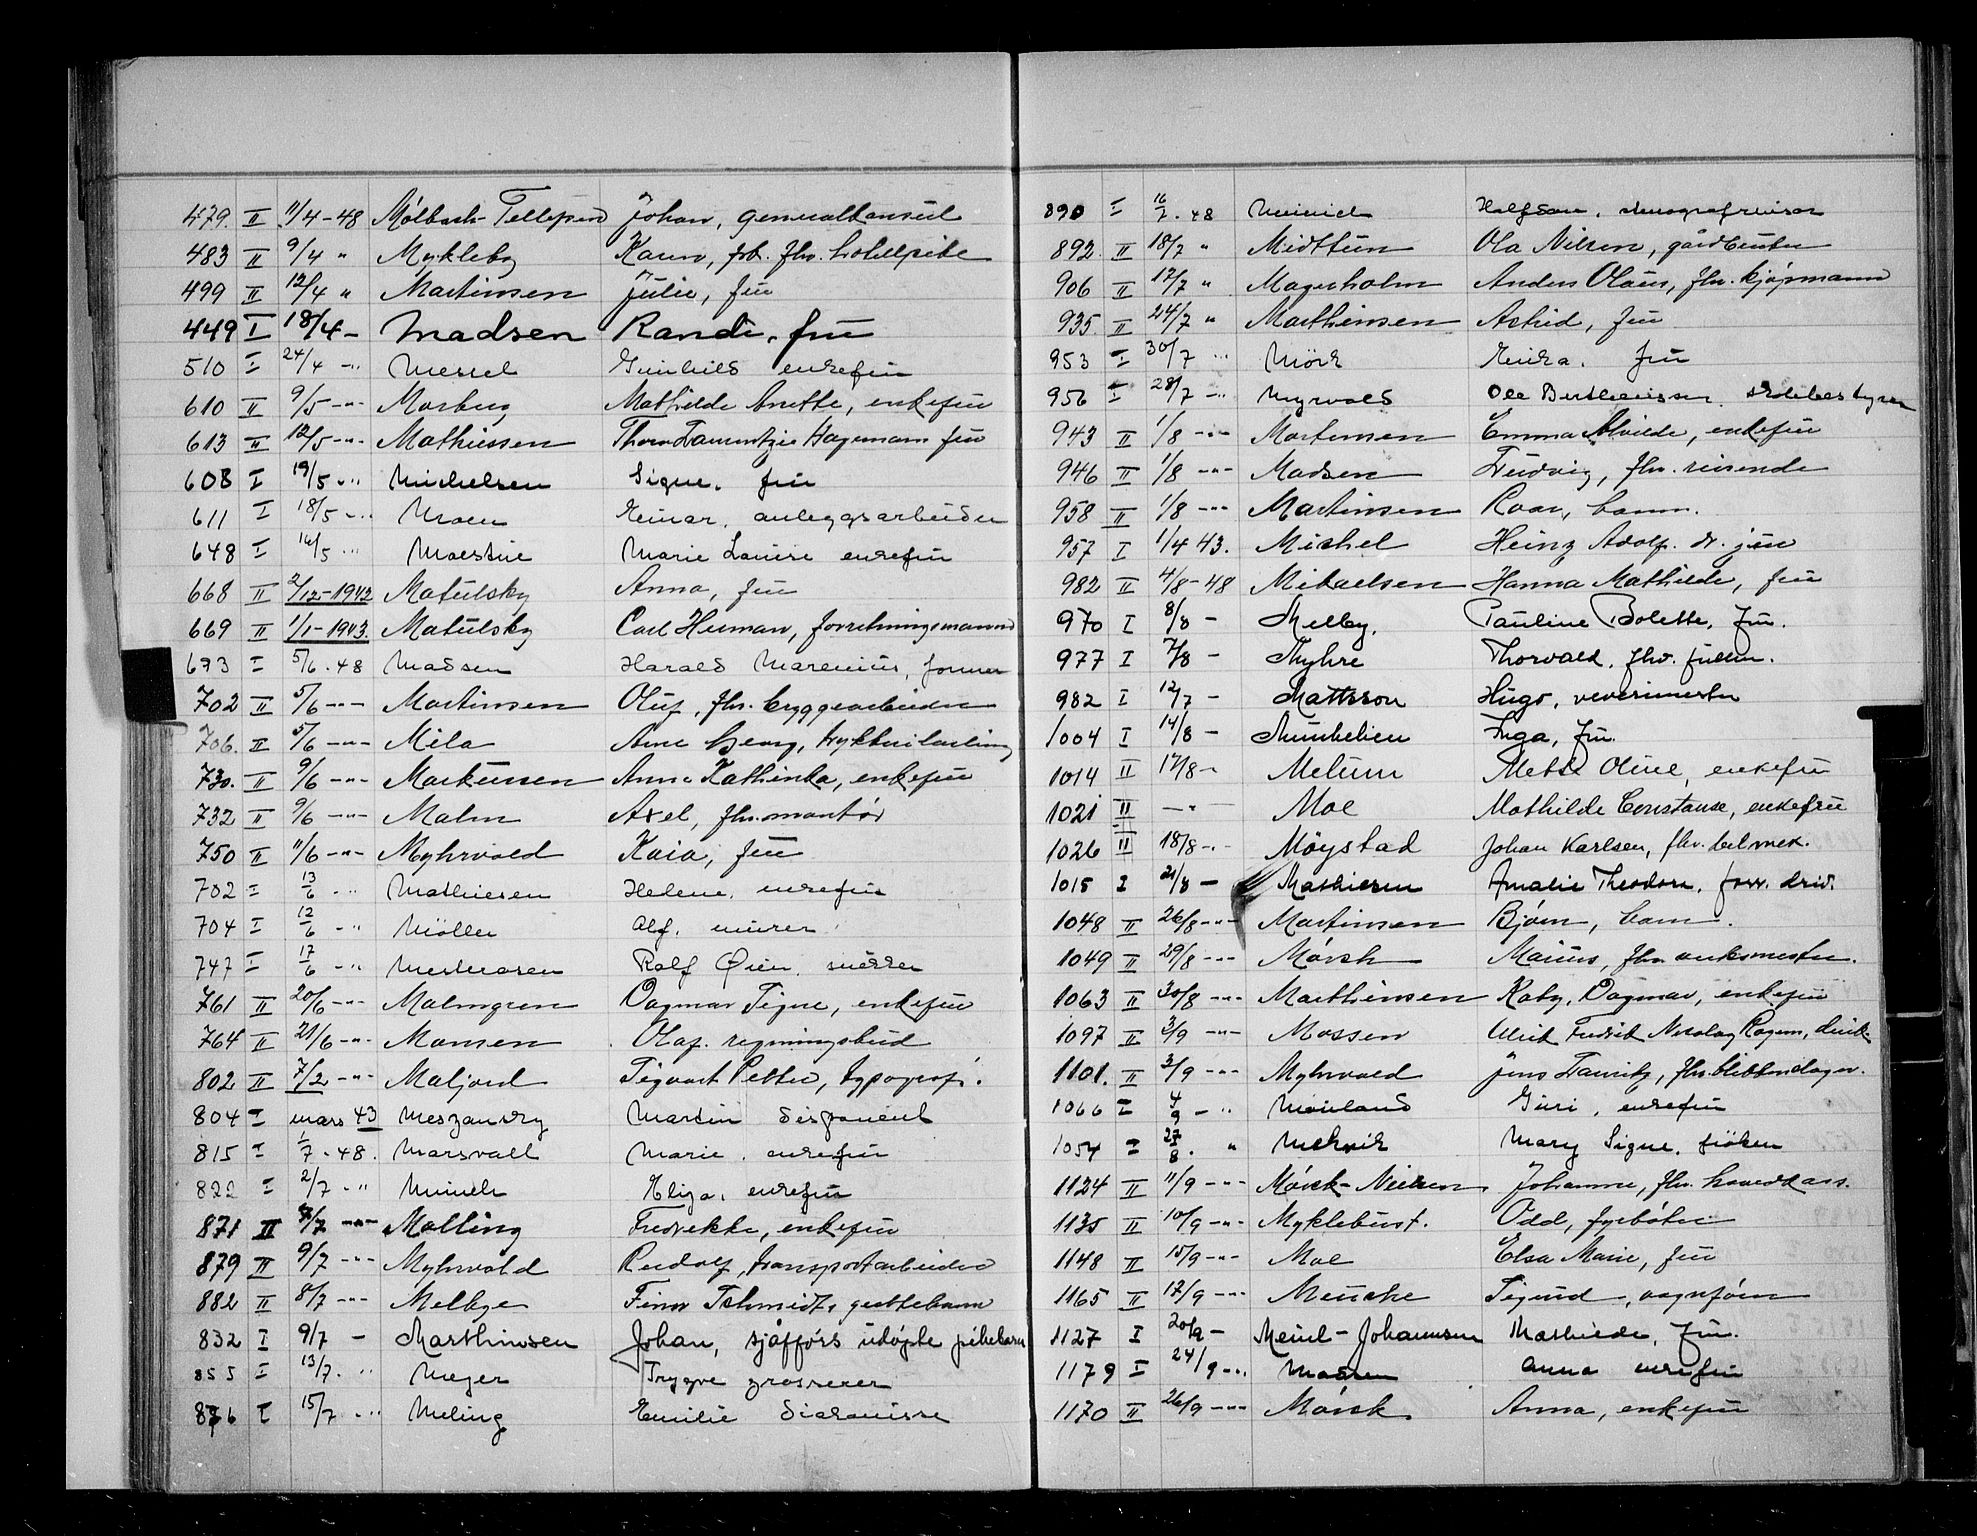 479. II 11/4-48 Mølbach-Tellefsen Johan, generalkonsul
483 II 9/4 " Mykleby Karen, frk. fhv. hotellpike
499 II 12/4 " Martinsen Julie, fru
449 I 18/4 - Madsen Randi, fru
510 I 24/4 -"- Messel Gunhild enkefru
610 II 9/5 -"- Morberg Mathilde Anette, enkefru
613 II 12/5 -"- Mathiessen Thora Hagemann fru
608 I 19/5 -"- Michelsen Signe, fru
611 I 18/5 -"- Moen Einar, anleggsarbeider
648 I 16/5 -"- Moestue Marie Louise enkefru
668 II 2/12-1942 Matulsky Anna, fru
669 II 1/1-1943. Matulsky Carl Herman, forretningsmann
673 I 5/6.48 Madsen Harald Marenius, former
702 II 5/6 -"- Martinsen Oluf, fhv. bryggearbeider
706. II 5/6 -"- Mila Arne Georg, trykkerilærling
730. II 9/6 -"- Markussen Anna Kathinka, enkefru
732 II 9/6 -"- Malm Axel, fhv. montør
750 II 11/6 -"- Myhrvold Kaia, fru
702 I 13/6 -"- Mathiesen Helene, enkefru
704 I 12/6 -"- Möller Alf, murer
747 I 17/6 -"- Rolf Øien, snekker
761 II 20/6 -"- Malmgren Dagmar Signe, enkefru
764 II 21/6 -"- Monsen Olaf, regningsbud
802 II 7/2 -"- Maljord Sigvart Petter, typograf.
804 I mars 43 Meszansky Martin disponent
815 I 1/7.48. Marsvall Marie, enkefru
822 I 2/7 -"- Munch Eliza, enkefru
871 II 7/7 -"- Molling Fredrikke, enkefru
879 II 9/7 -"- Myhrvold Rudolf, transportarbeider
882 II 8/7 -"- Melbye Finn Schmidt, guttebarn
832 I 9/7 - Marthinsen Johan, sjåfførs udøpte pikebarn
855 I 13/7. " Meyer Trygve grosserer
876 I 15/7 -"- Meling Emilie diakonisse
890 I 16/7.48 Meinich Halfdan, stenografrevisor
892. II 18/7 " Midttun Ola Nilsen, gårdbruker
906 II 17/7 " Magerholm Anders Olaus, fhv. kjøpmann
935. II 24/7 " Marthinsen Astrid, fru
953 I 30/7 -"- Mörk Erika, fru
956 I 28/7 -"- Myrvold Ole skolebestyrer
943 II 1/8 -"- Mortensen Emma Alvilde, enkefru
946 II 1/8 -"- Madsen Ludvig, fhv. reisende
958 II 1/8 -"- Martinsen Roar, barn.
957 I 1/4 43. Michel Heinz Adolf. dr. jur.
982 II 4/8-48 Mikaelsen Hanna Mathilde, fru
970 I 8/8 - Melby, Pauline Bolette, fru.
977 I 7/8 - Myhre Thorvald, fhv. fullm.
982 I 12/7 - Mattsson Hugo, veverimester
1004 I 14/8 - Munkelien Inga, fru
1014 II 17/8 - Melum Mette Oline, enkefru
1021 II -"- Moe Mathilde Constanse, enkefru
1026 II 18/8 -"- Møystad Johan Karlsen, fhv. bilmek.
1015 I 21/8 - Mathiesen Amalie Theodora, forr. driv.
1048 II 26/8 -"- Martinsen Bjørn, barn.
1049 II 29/8 -"- Mørch Marius, fhv. anksmester.
1063 II 30/8 -"- Marthinsen Katy, Dagmar, enkefru
1097 II 3/9 -"- Mossen Ulrik Fredrik Nicolay direk.
1101. II 3/9 -"- Myhrvold Jens Lauritz, fhv. blikkenslager.
1066 I 4/9 -"- Moiland Guri, enkefru
1054 I 27/8. " Mehvik Mary Signe, frøken
1124 II 11/9 -"- Mørck-Nielsen Johanne, fhv. hovedkass.
1135 II 10/9 -"- Myklebust. Odd, fyrbøter
1148 II 15/9 -"- Moe Elsa Marie, fru
1165 II 17/9 -"- Munche Sigurd, vognfører
1127 I 20/9 - Meinl-Johannsen Mathilde, fru.
1179 I 24/9 -"- Madsen Anna enkefru
1170 II 26/9 -"- Mørck Anna, enkefru